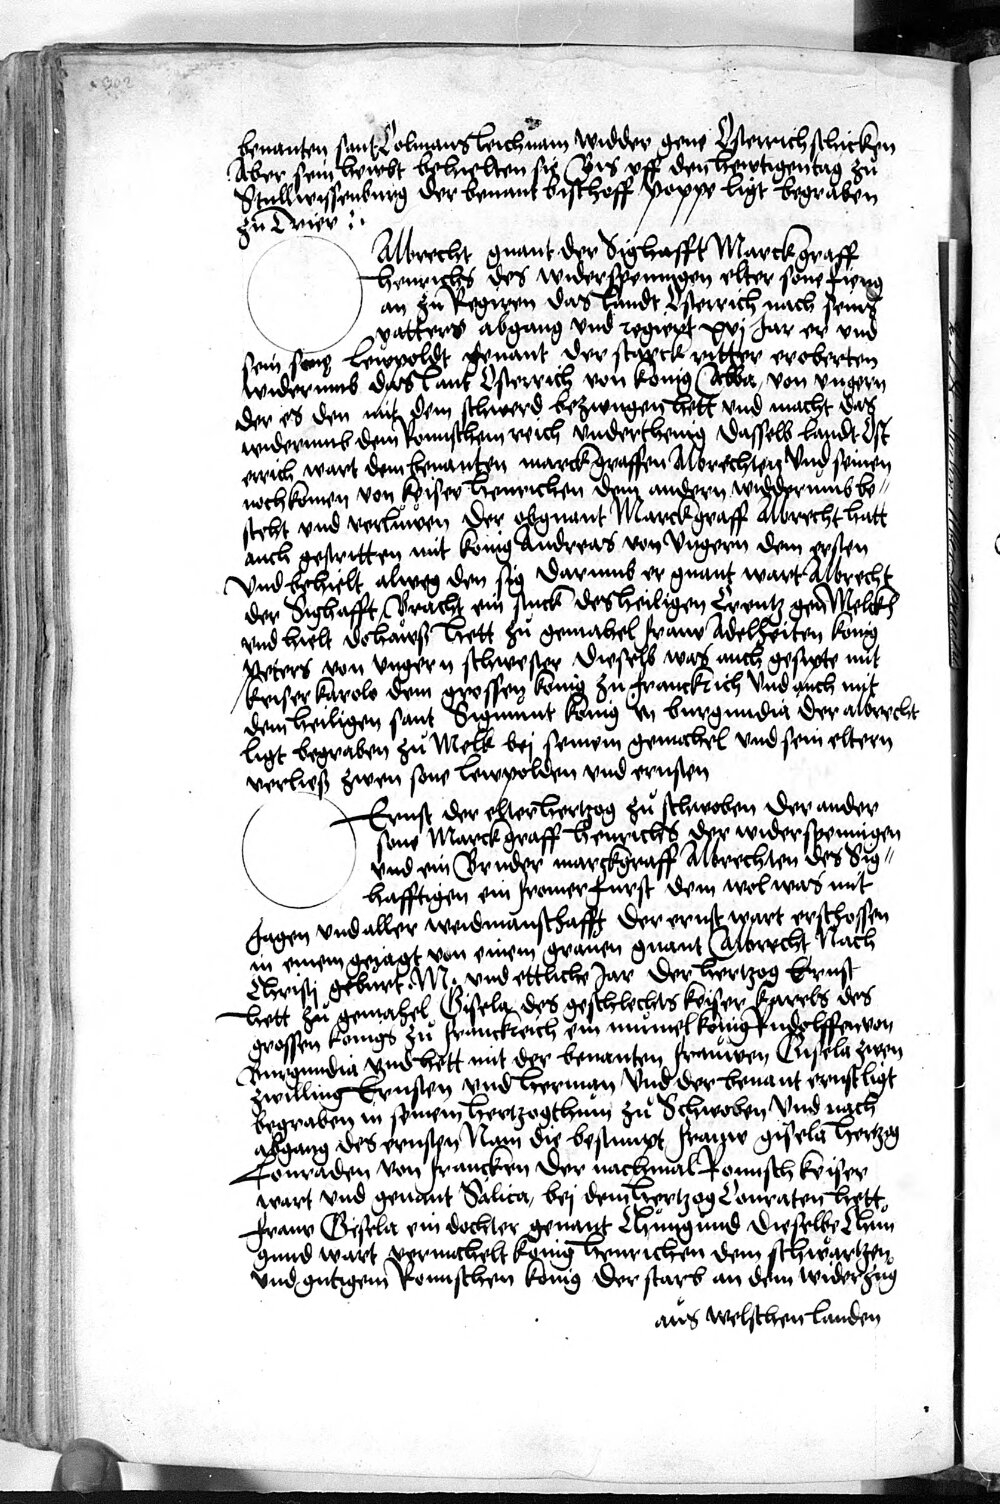 302
benanten sant Colmans leichnam widder gene Osterrich schicken
Aber sein hewbt behielten sie Bis vff den hewtigen tag zu
Stullwissenburg der benant bischoff Poppe ligt begraben
zu Trier :.
Albrecht gnant der Sighafft Marckgraff
henrichs des widerspennigen elter sone fieng
an zu Regiren das landt Osterrich nach seins
vatters abgang vnd regiert xvj Jar er vnd
sein sone lewpoldt genant der starck ritter eroberten
widerumb das lant Osterrich von konig Abba von vngern
der es den mit dem schwerd bezwungen hett vnd macht das
widerumb dem Romischem reich vnderthenig dasselb landt Ost
errich wart dem benanten marckgraffen Albrechten Vnd seinen
nochkomen von keiser henrichen dem andern widderumb be//
steht vnd verluwen Der obgnant Marckgraff Albrecht hatt
auch gestritten mit konig Andreas von Vngern dem ersten
Vnd behielt alweg den sig Darumb er gnant wart Albrecht
der Sighafft Bracht ein stuck des heiligen Creutz gen Melckh
vnd hielt do hawß hett zu gemahel fraw Adelheiten konig
Peters von vngern schwester Dieselb was auch gesipte mit
keiser karolo dem grossen konig zu franckrich Vnd auch mit
dem heiligen sant Sigmunt konig in burgundia Der albrecht
ligt begraben zu Melk bej seinem gemahel vnd sein eltern
verließ zwen sone lewpolden vnd ernsten
Ernst der elter hertzog zu schwoben Der ander
sone Marckgraff henrichs der widerspennigen
vnd ein Bruder marckgraff Albrechten des Sig//
hafftigen ein fromer furst dem wol was mit
Jagen vnd aller weidmanschafft Der ernst wart erschossen
in einem gejagt von einem graven gnant Albrecht Nach
Christi geburt M. vnd ettliche Jar Der hertzog Ernst
hett zu gemahel Gisela des geschlechts keiser karels des
grossen konigs zu franckreich ein mumel konig Rudolffen von
Burgundia vnd hett mit der benanten frauwen Gisela zwen
zwilling Ernsten vnd herman Vnd der benant ernst ligt
begraben in seinem hertzogthum zu Schwoben Vnd nach
abgang des ernsten Nam die bestimpt fraw gisela hertzog
Conraden von francken Der nachmal Romisch keiser
wart vnd genant Salica, bej dem hertzog Conraten hett
fraw Gisela ein dochter genant Chungund Dieselbe Chun
gund wart vermehelt konig henrichen dem schwartzen
vnd gutigem Romschen konig Der starb an dem widerzug
aus welschen landen